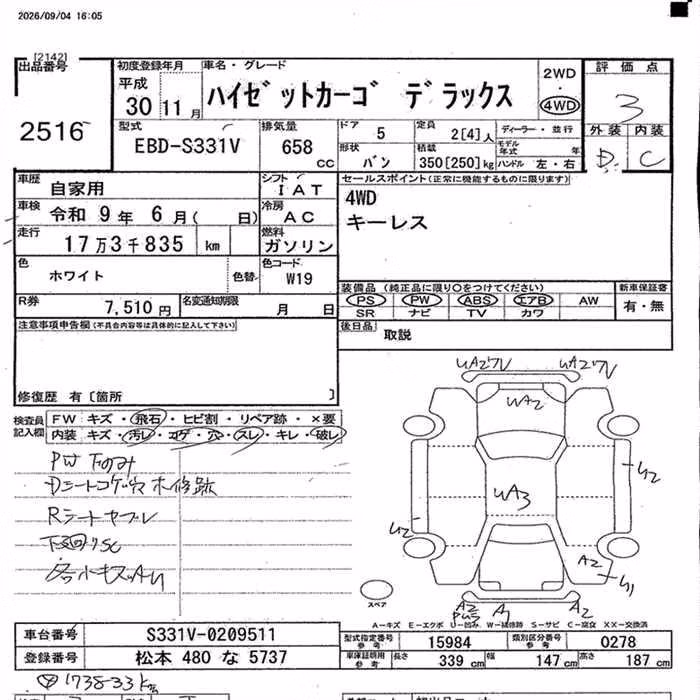 2026/09/04 16:05
[2142]
出品番号 2516
初度登録年月 平成 30 11月
車名・グレード ハイゼットカーゴ デラックス
2WD 4WD
評価点 3
外装 内装
D C
型式 EBD-S331V
排気量 658 cc
ドア 5
定員 2[4]人
ディーラー・並行
形状 バン
積載 350[250]kg
モデル年式 年
ハンドル 左・右
車歴 自家用
シフト IAT
セールスポイント(正常に機能するものに限ります)
車検 令和 9年 6月( 日)
冷房 AC
4WD
キーレス
走行 17万3千835 km
燃料 ガソリン
色 ホワイト
色替
色コード W19
装備品 (純正品に限り○をつけてください)
新車保証書
PS PW ABS エアB AW
有・無
SR ナビ TV カワ
R券 7,510円
名変通知期限 月 日
後日品 取説
注意事項申告欄(不具合内容等は具体的に記入して下さい)
修復歴 有〔箇所 〕
検査員記入欄
FW キズ・飛石・ヒビ割・リペア跡・×要
内装 キズ・汚レ・コゲ・穴・スレ・キレ・破レ
PW下のみ
Dシートコゲ穴 木修跡
Rシートヤブレ
下廻りSC
各小キズAU
UA2 UA3 U2 U2 A2 U1
A2 A1 A2
スペア
A-キズ E-エクボ U-凹み W-補修跡 S-サビ C-腐食 XX-交換済
車台番号 S331V-0209511
型式指定番号 参考 15984
類別区分番号 参考 0278
登録番号 松本 480 な 5737
車庫証明用 参考 長さ 339 cm 幅 147 cm 高さ 187 cm
1738-33